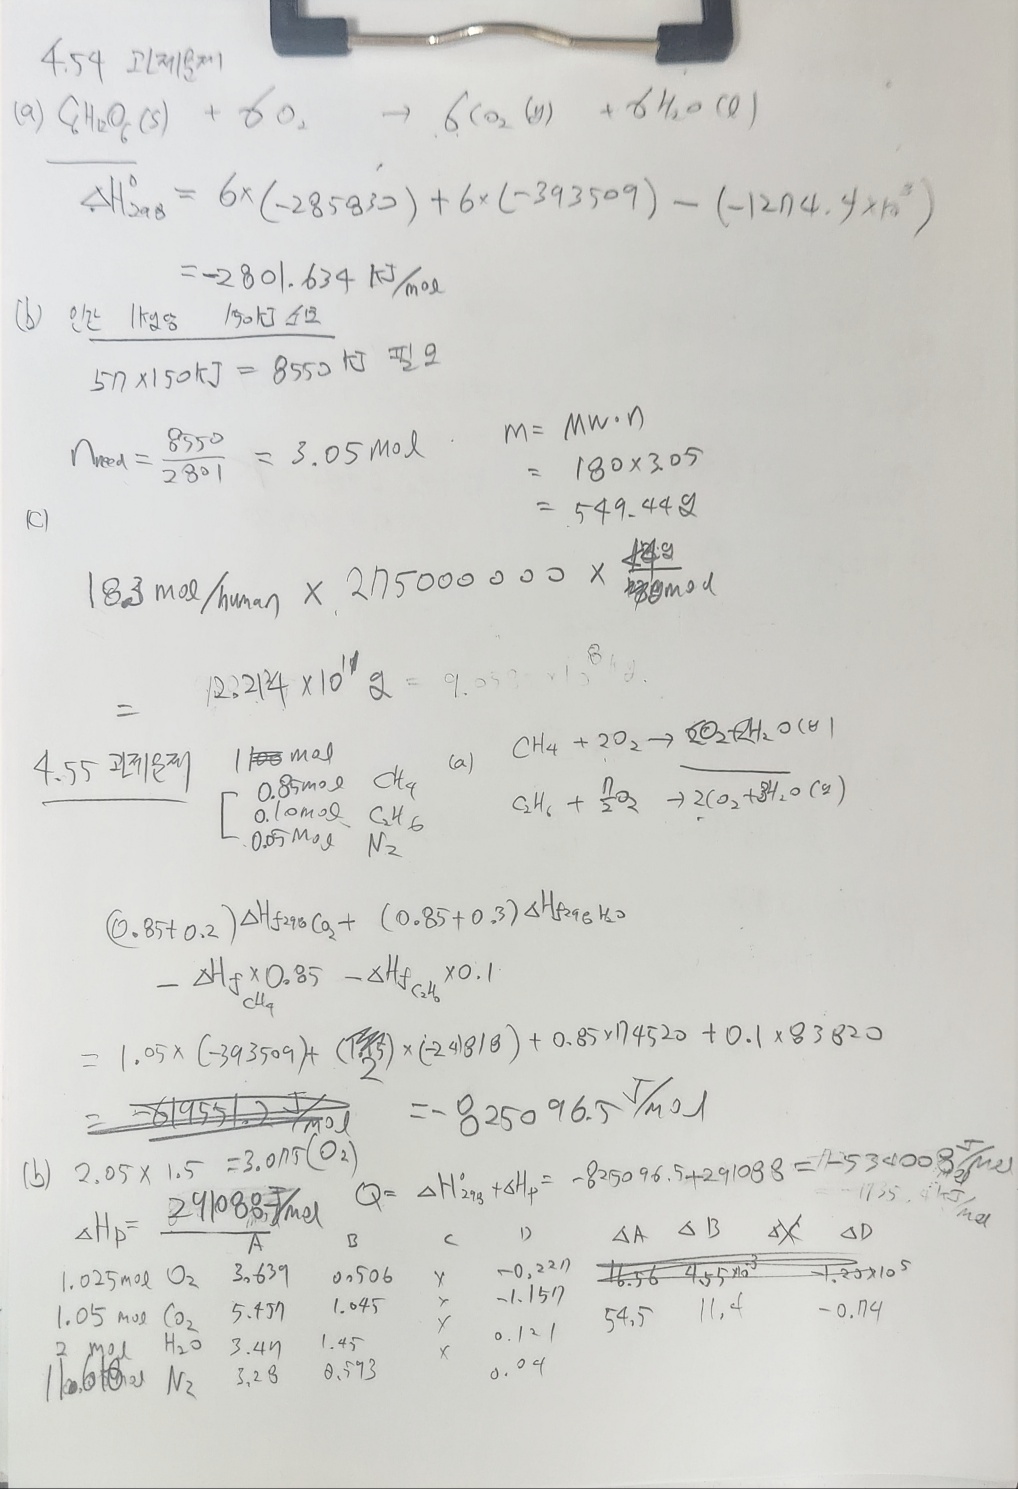 4.54 과제문제
(a) C6H12O6(s) + 6O2 → 6CO2(g) + 6H2O(l)
ΔH°298 = 6×(-285830) + 6×(-393509) - (-1274.4×10³)
= -2801.634 KJ/mol
(b) 인간 1kg당 150KJ 소모
57×150KJ = 8550 KJ 필요
nneed = 8550/2801 = 3.05 mol
m = MW·n
= 180×3.05
= 549.44g
(c)
18.3 mol/human × 275000000 ×
=
4.55 과제문제
1 mol
0.85mol CH4
0.10mol C2H6
0.05mol N2
(a) CH4 + 2O2 → CO2+2H2O(g)
C2H6 + 7/2O2 → 2CO2+3H2O(g)
(0.85+0.2)ΔHf298CO2 + (0.85+0.3)ΔHf298H2O
- ΔHfCH4×0.85 - ΔHfC2H6×0.1
= 1.05×(-393509)+ (2)×(-241818) + 0.85×74520 + 0.1×83820
= -825096.5 J/mol
(b) 2.05×1.5 = 3.075(O2)
ΔHp= 291088 J/mol
Q= ΔH°298 +ΔHp = -825096.5+291088 = -534008 J/mol
A B C D ΔA ΔB ΔC ΔD
1.025mol O2 3.639 0.506 × -0.227
1.05 mol CO2 5.457 1.045 × -1.157 54.5 11.4 -0.74
2 mol H2O 3.47 1.45 × 0.121
N2 3.28 0.593 × 0.04